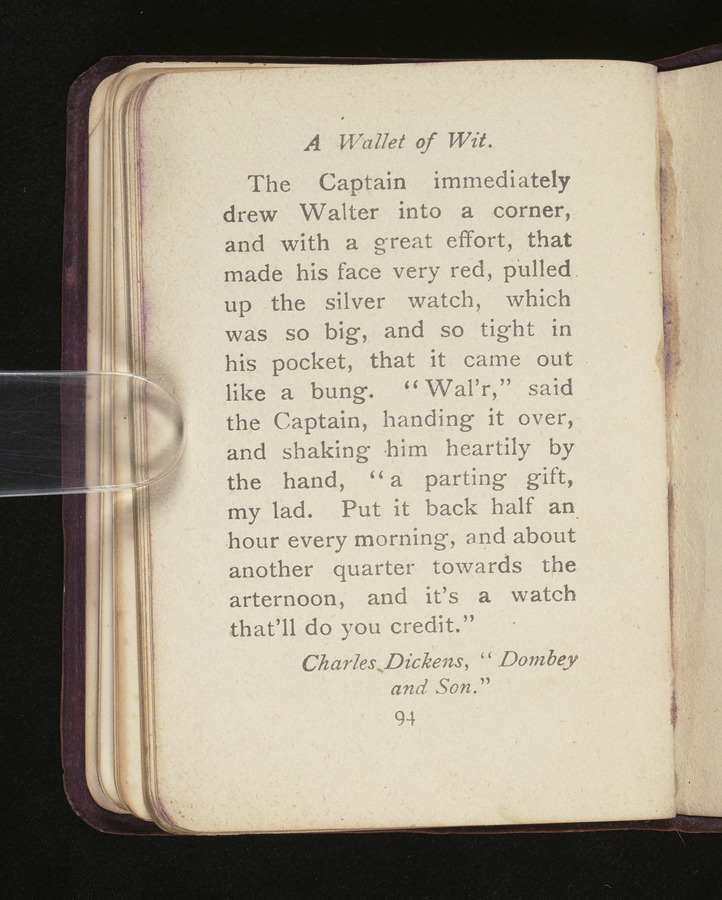 A Wallet of Wit.
The Captain immediately
drew Walter into a corner,
and with a great effort, that
made his face very red, pulled
up the silver watch, which
was so big, and so tight in
his pocket, that it came out
like a bung. “Wal’r,” said
the Captain, handing it over,
and shaking him heartily by
the hand, “a parting gift,
my lad. Put it back half an
hour every morning, and about
another quarter towards the
arternoon, and it’s a watch
that’ll do you credit.”
Charles Dickens, “Dombey
and Son.”
94